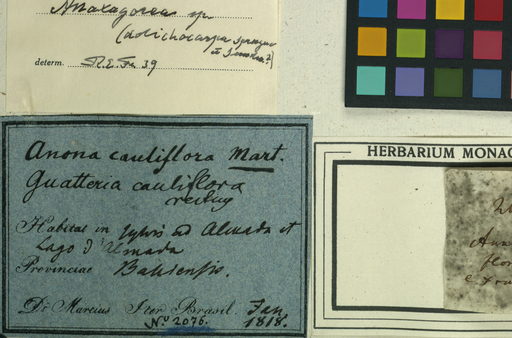 Anaxagorea sp
(dolichocarpa Sprague
et Sandw.?)
determ. R.E.Fr 39
Anona cauliflora Mart.
Guatteria cauliflora
Habitat in sylvis ad Almada et
Lago d'Almada
Provinciae Bahiensis.
Dr Martius Iter Brasil. Jan
No 2076. 1818.
HERBARIUM MONAC